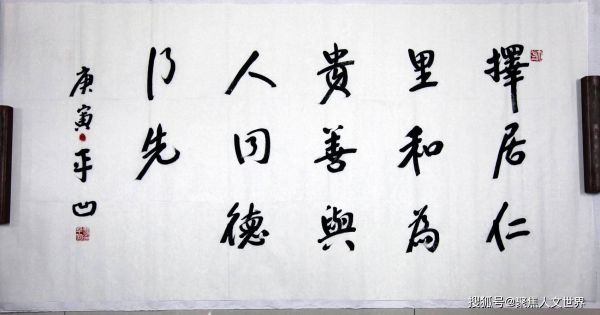 擇居仁
里和為
貴善與
人同德
行先
庚寅平凹
搜狐号@聚焦人文世界